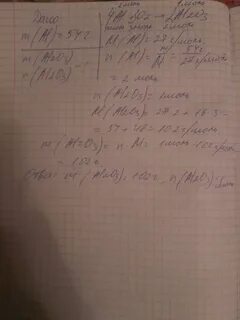 Дано:
m(Al)=54г
m(Al2O3)
n(Al2O3)
2моль 1моль
4Al 3O2 → 2Al2O3
M(Al)=27г/моль
n(Al)= m/M = 54г/27г/моль
= 2 моль
n(Al2O3)=1моль
M(Al2O3)=27·2+16·3=
=54+48=102г/моль
m(Al2O3)= n·M= 1моль·102г/моль
=102г
Ответ: m(Al2O3)=102г, n(Al2O3)=1моль